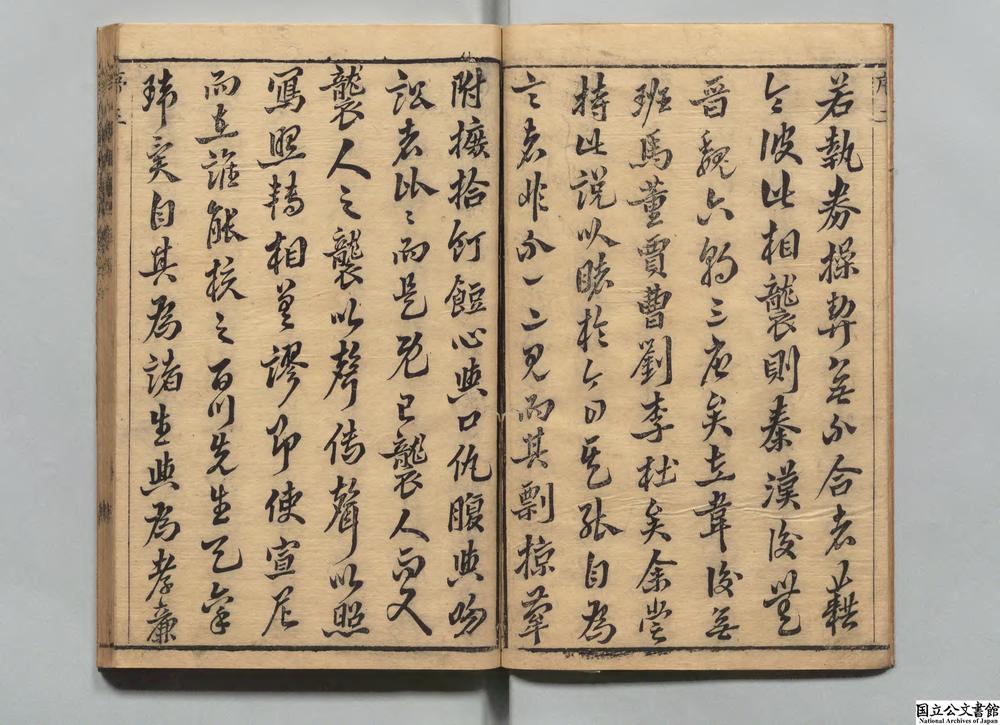 序二
若執券操契無不合者藉
令彼此相襲則秦漢後無
晉魏六朝三唐矣左韋後無
班馬董賈曹劉李杜矣余嘗
持此說以睹於今日其張自為
言者非不一二見而其剽掠牽
附摭拾飣餖心與口仇腹與吻
訟者比〻而是既已襲人而又
襲人之襲以聲傳聲以照
寫照轉相差謬即使宣尼
而在誰能核之百川先生
自其為諸生與為孝廉
序三
国立公文書館
National Archives of Japan